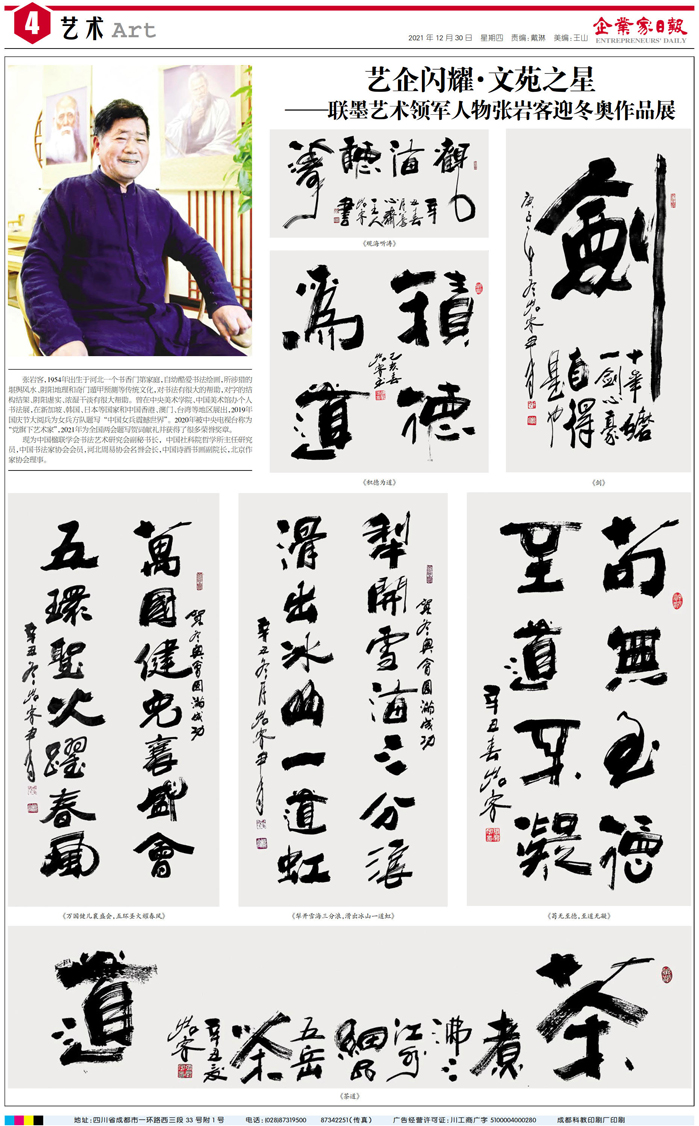 4 艺术 Art
2021年12月30日 星期四 责编:戴琳 美编:王山
企業家日報
ENTREPRENEURS' DAILY
艺企闪耀·文苑之星
——联墨艺术领军人物张岩客迎冬奥作品展
張岩客,1954年出生于河北一个书香门第家庭,自幼酷爱书法绘画,所涉猎的
堪舆风水、阴阳地理和奇门遁甲预测等传统文化,对书法有很大的帮助,对字的结
构结架、阴阳虚实、浓湿干淡有很大帮助。曾在中央美术学院、中国美术馆办个人
书法展,在新加坡、韩国、日本等国家和中国香港、澳门、台湾等地区展出,2019年
国庆节大阅兵为女兵方队题写“中国女兵震撼世界”。2020年被中央电视台称为
“党旗下艺术家”,2021年为全国两会题写贺词献礼并获得了很多荣誉奖章。
现为中国楹联学会书法艺术研究会副秘书长,中国社科院哲学所主任研究
员,中国书法家协会会员,河北周易协会名誉会长,中国诗酒书画副院长,北京作
家协会理事。
觀海聽濤
辛丑春月
《观海听涛》
積德
為道
乙亥春
岩客
《积德为道》
劍
十年磨
一劍心豪
自得
是帅
《剑》
萬國健兒襄盛會
五環聖火躍春風
賀冬奧會圓滿成功
辛丑冬岩客
《万国健儿襄盛会,五环圣火耀春风》
犁開雪海三分浪
滑出冰山一道虹
賀冬奧會圓滿成功
辛丑冬月岩客
《犁开雪海三分浪,滑出冰山一道虹》
苟無至德
至道不凝
辛丑春岩客
《苟无至德,至道无凝》
茶
煮沸三江水
細品五岳茶
辛丑夏
岩客
道
《茶道》
地址:四川省成都市一环路西三段33号附1号 电话:(028)87319500 87342251(传真) 广告经营许可证:川工商广字5100004000280 成都科教印刷厂印刷